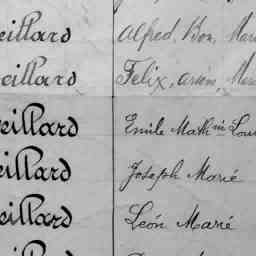 eillard Alfred, Bon, Marie
eillard Felix, arsin, Marie
eillard Emile Math in Lou
eillard Joseph Marié
eillard León Marié
eillard